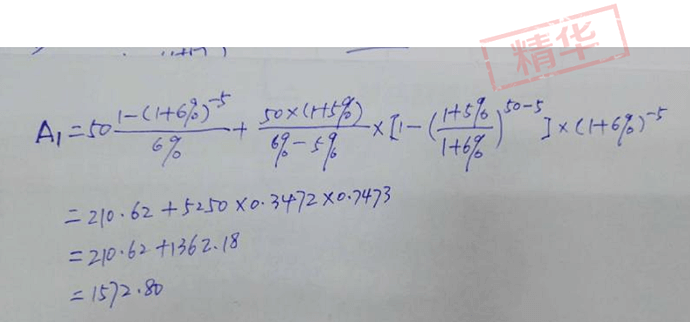 精华
A₁=50 (1-(1+6%)^-5)/6% + (50×(1+5%))/(6%-5%) × [1-((1+5%)/(1+6%))^(50-5)] × (1+6%)^-5
=210.62+5250×0.3472×0.7473
=210.62+1362.18
=1572.80